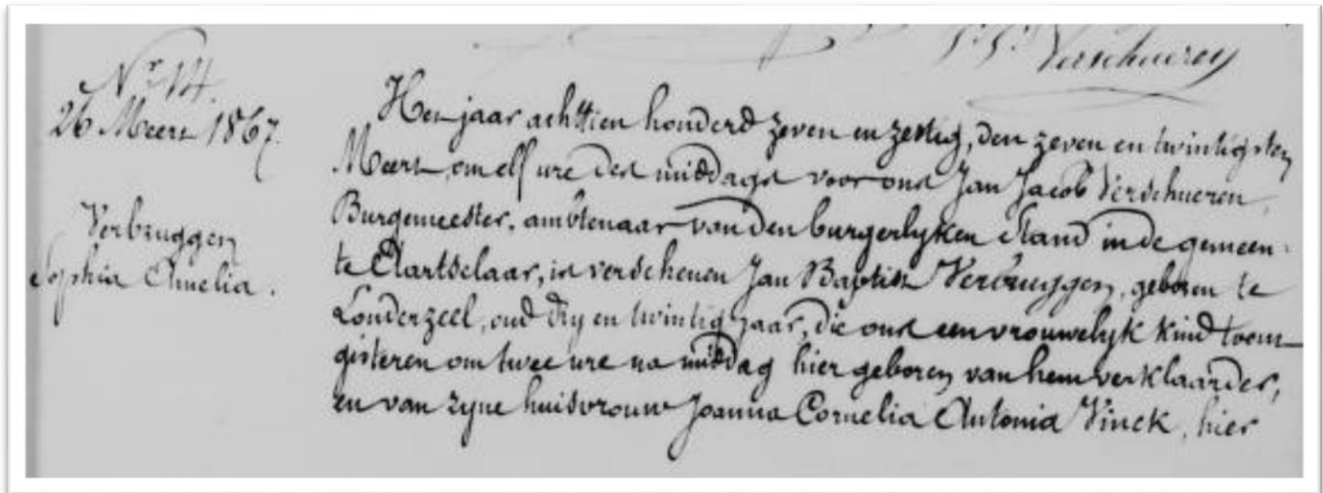 J. J. Verschueren
Nr 14.
26 Meert 1867.
Verbruggen
Sophia Amelia.
Het jaar achttien honderd zeven en zestig, den zeven en twintigsten
Meert om elf ure des middags voor ons Jan Jacob Verschueren,
Burgemeester, ambtenaar van den burgerlyken stand in de gemeen-
te Aartselaar, is verschenen Jan Baptist Verbruggen, geboren te
Londerzeel, oud dry en twintig jaar, die ons een vrouwelyk kind toont
gisteren om twee ure na middag hier geboren van hem verklaarder,
en van zyne huisvrouw Joanna Cornelia Antonia Vinck, hier